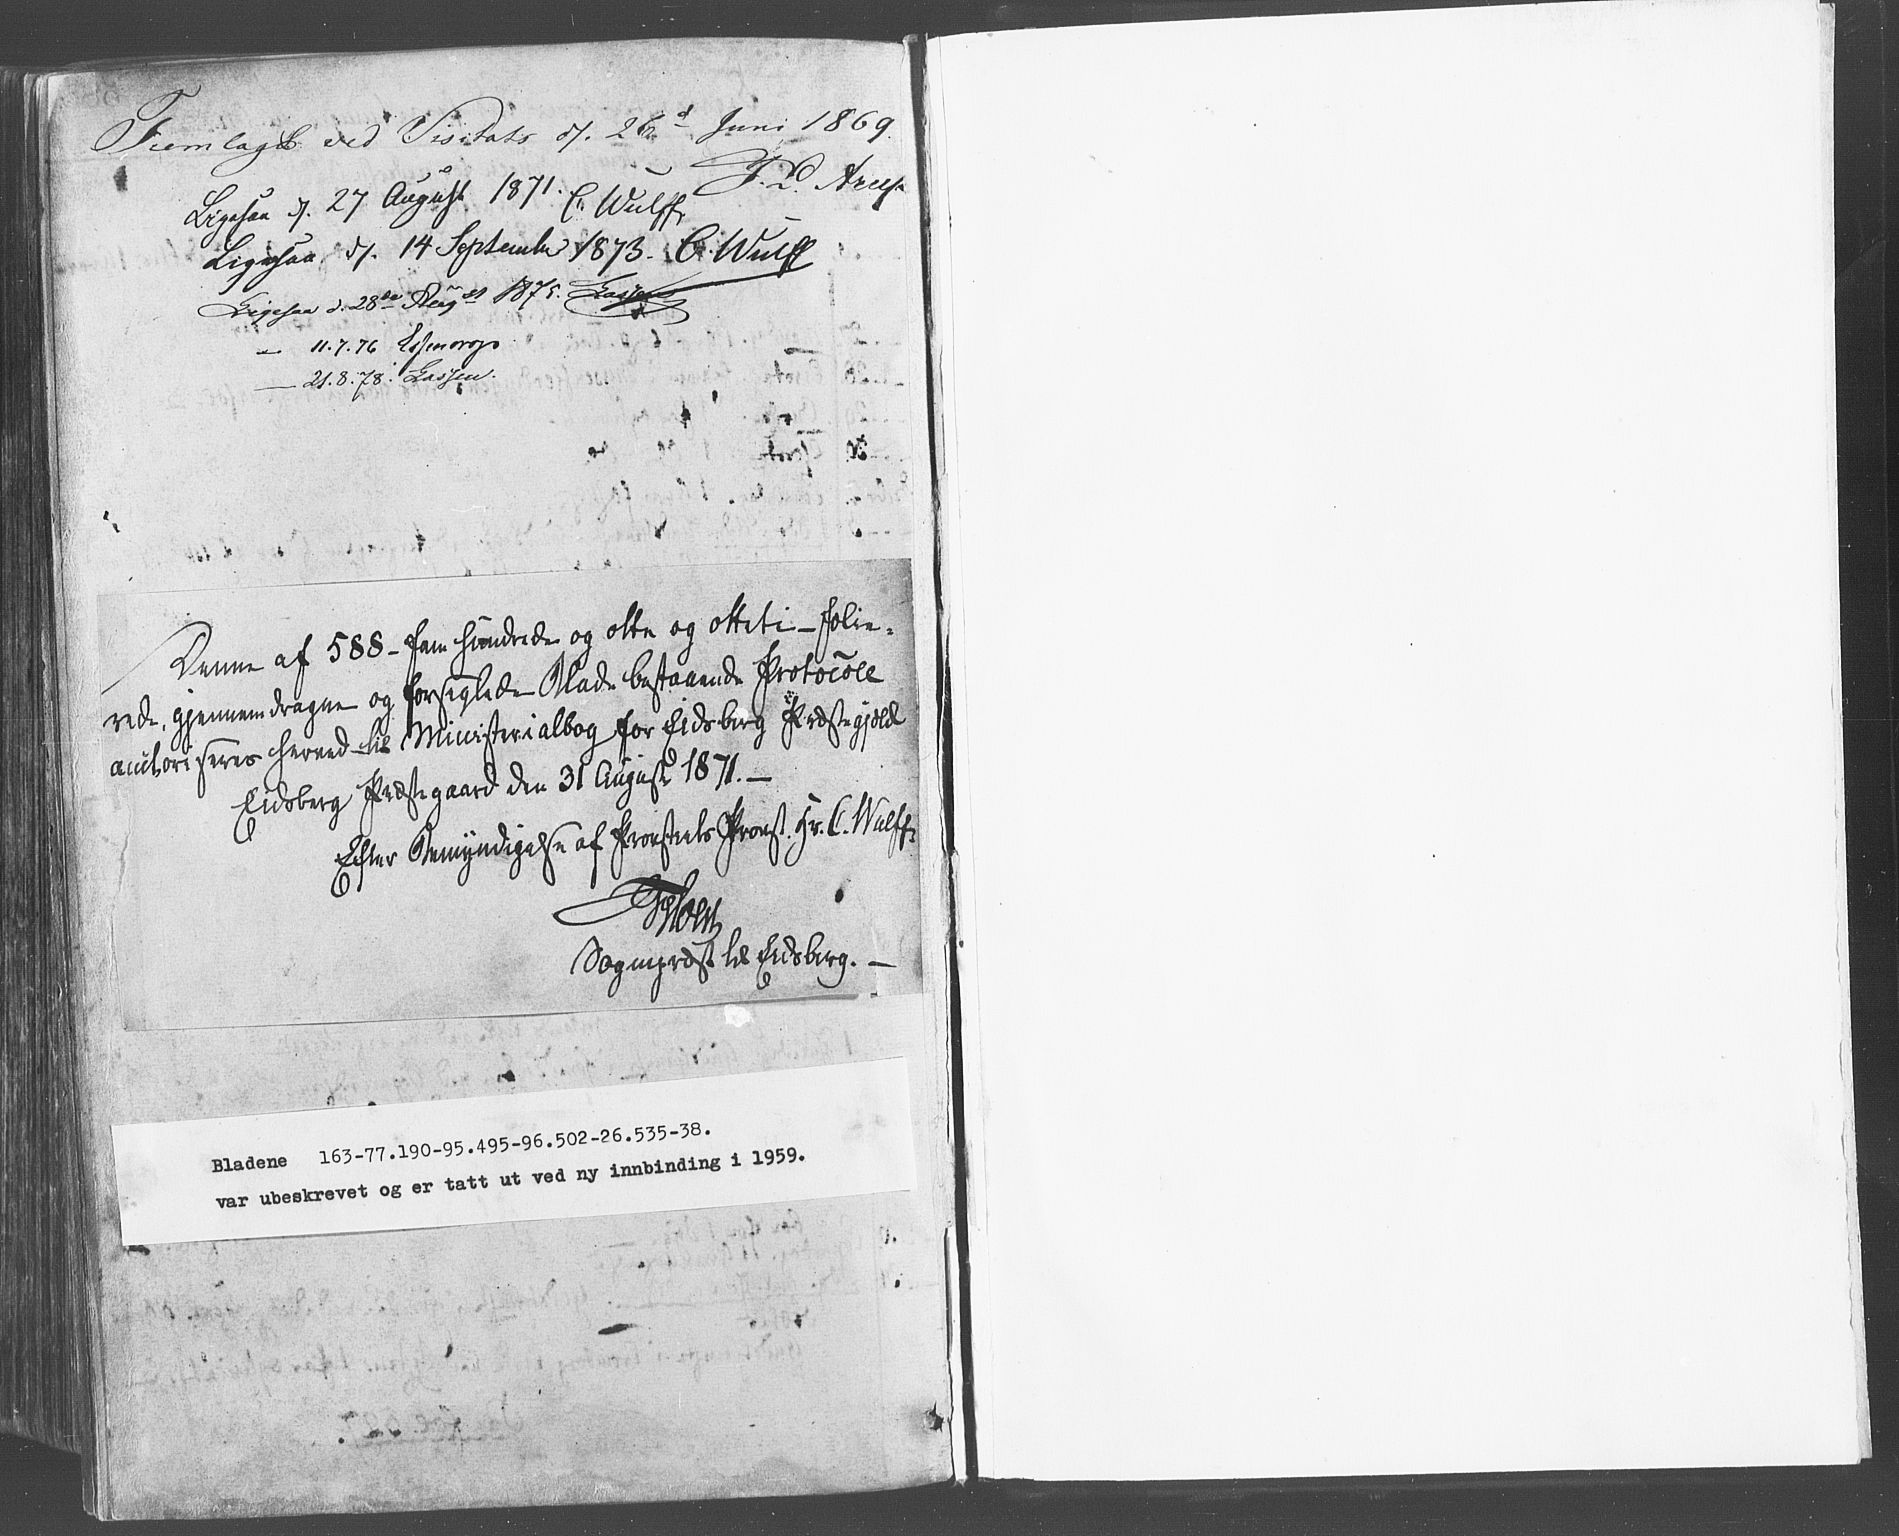 Fremlagt ved Visitats d. 26 Juni 1869.
J. L. Arup
Ligesaa d. 27 August 1871. C. Wulff,
Ligesaa d. 14 September 1873. C. Wulff
Ligesaa d. 28de Augst 1875. Lassen
— 11.7.76 Essendrop
— 21.8.78. Lassen.
Denne af 588 - fem hundrede og otte og otteti - folie-
rede, gjennemdragne og forseglede Blade bestaaende Protocoll
authoriseres herved til Ministerialbog for Eidsberg Præstegjeld
Eidsberg Præstegaard den 31 August 1871. —
Efter Bemyndigelse af Provstiets Provst. Hr. C. Wulff.
Sognepræst til Eidsberg. —
Bladene 163-77.190-95.495-96.502-26.535-38.
var ubeskrevet og er tatt ut ved ny innbinding i 1959.